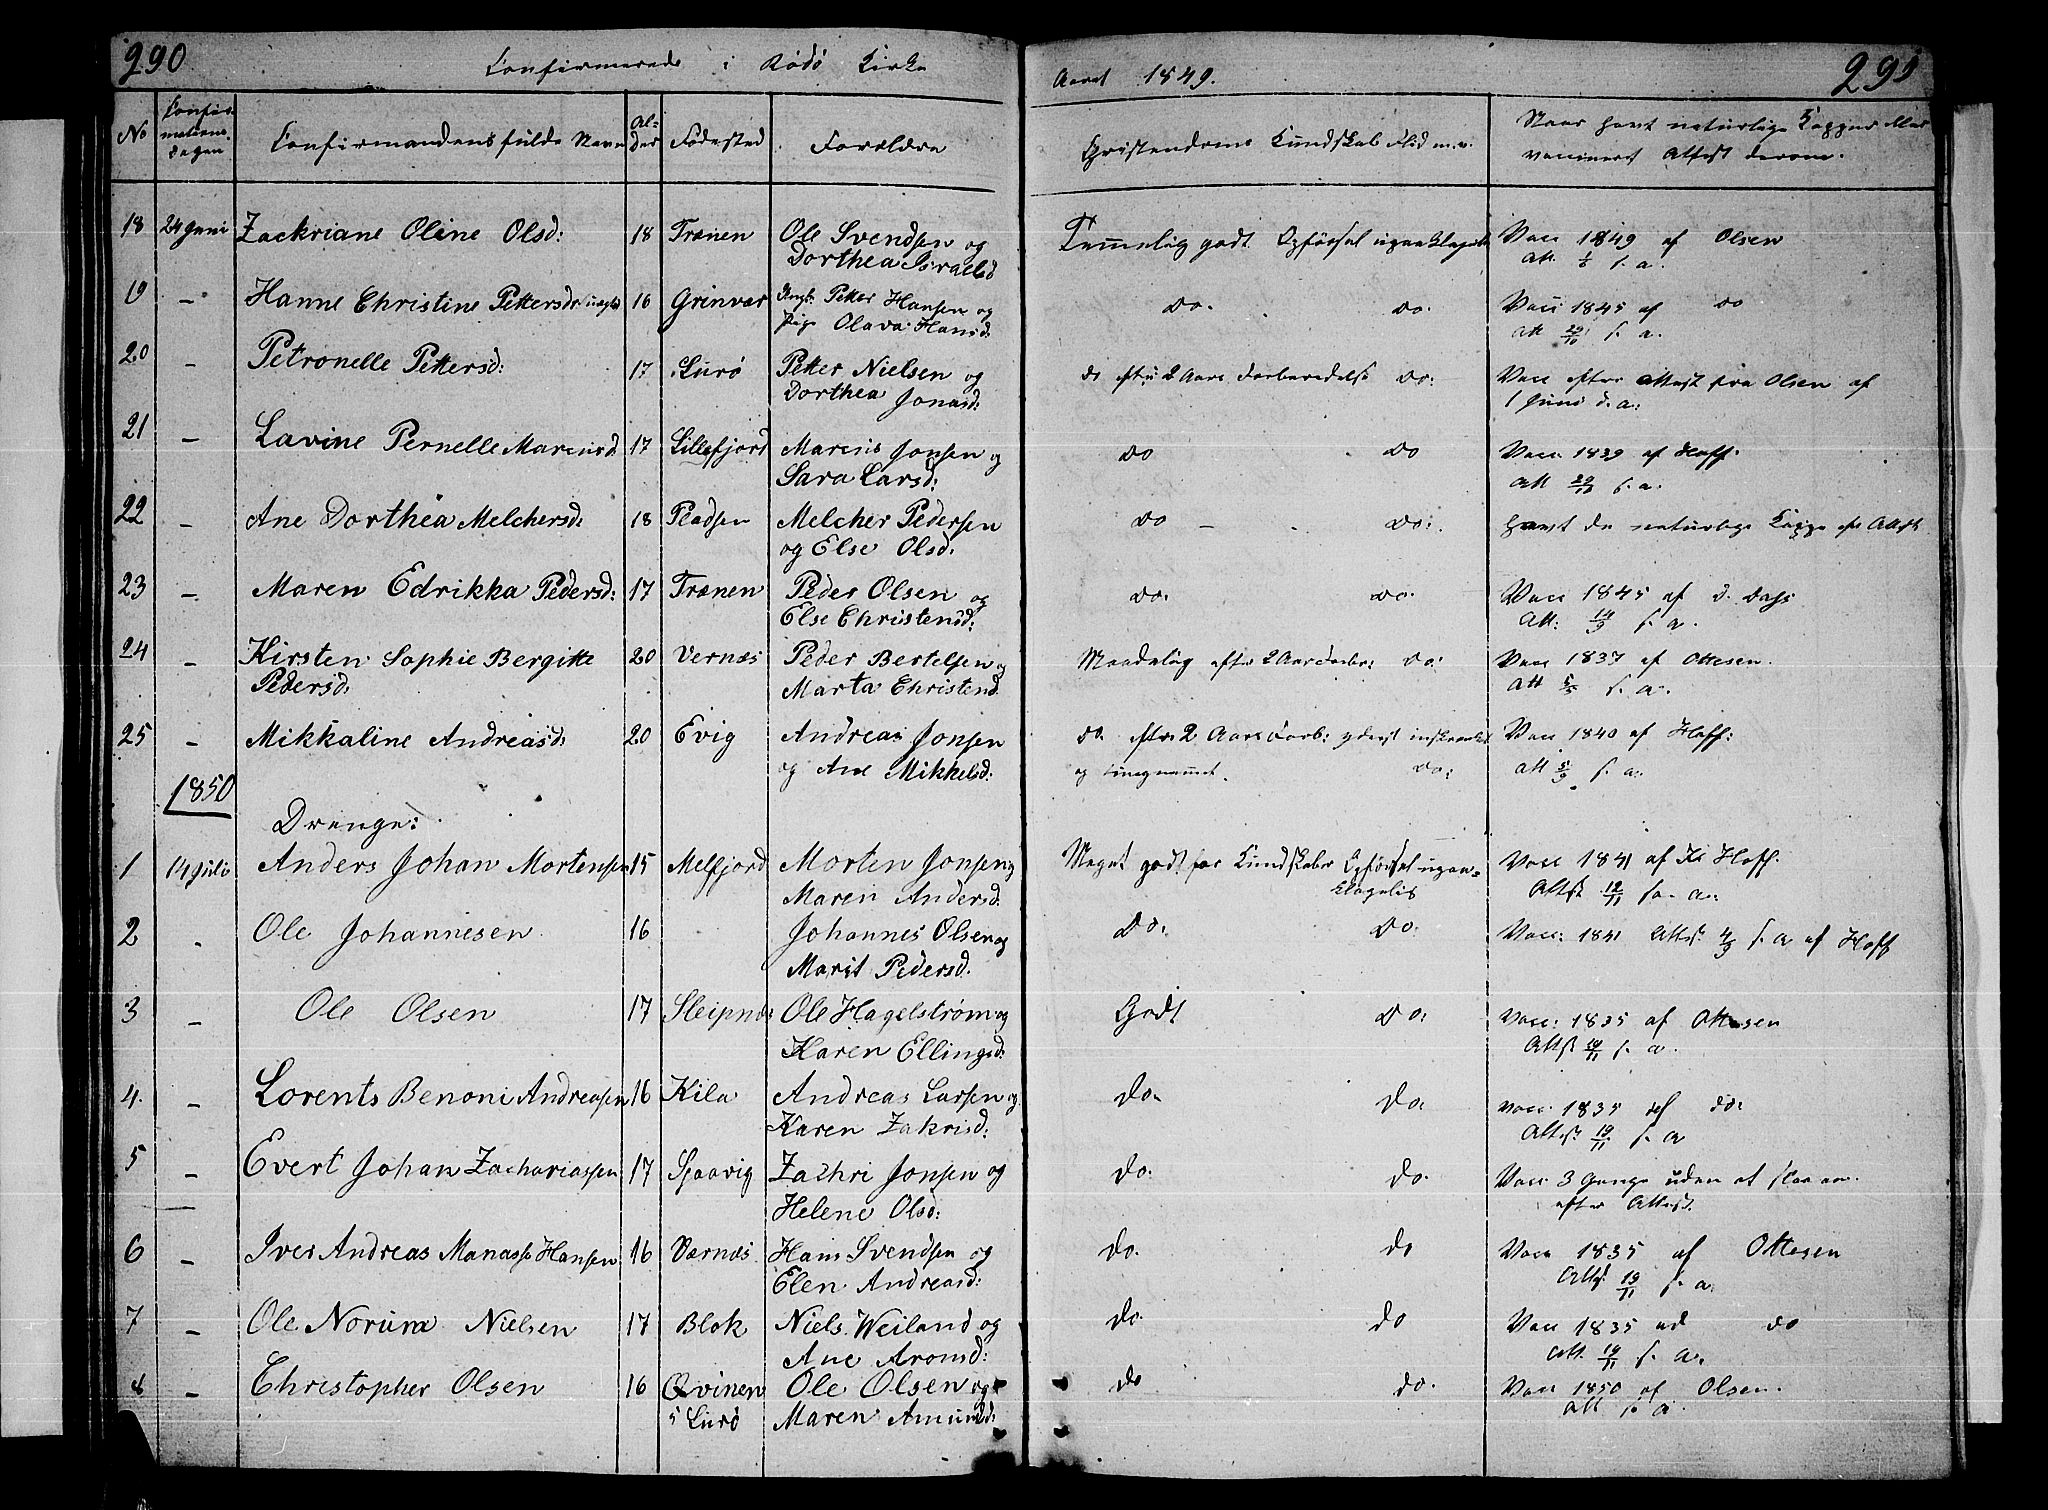 290
Confirmerede i Rödö Kirke
Aaret 1849.
291
No
Confir-
mations-
dagen
Confirmandens fulde Navn
Al-
der
Födested
Forældre
Christendoms Kundskab Flid m.v.
Naar havt naturlige Kopper eller
vaccineret Attest derom.
18 24 Juni Zackriane Oline Olsd: 18 Trænen Ole Svendsen og Temmelig godt Opførsel upaaklagelig Vacc 1849 af Olsen
Dorthea Israelsd Att. s. a.
19 - Hanne Christine Pettersdr: uægte 16 Grinvær Ungk. Petter Hansen og do. do. Vacc 1845 af do
Pige Olava Hansd: Att s. a.
20 - Petronelle Pettersd: 17 Lurö Petter Nielsen og do efter 2 Aars Forberedelse do: Vacc efter Attest fra Olsen af
Dorthea Jonasd: 1 Juni d. a:
21 - Lavine Pernelle Mareiusd 17 Lillefjord Mareius Jonsen og do do Vacc 1839 af Hoff.
Sara Larsd: Att s. a.
22 - Ane Dorthea Melchersd: 18 Pladsen Melcher Pedersen do do: havt de naturlige Kopper Attest
og Else Olsd:
23 - Maren Edrikka Pedersd: 17 Trænen Peder Olsen og do: do. Vacc 1845 af D. Dass
Else Christensd: Att: 14/9 s. a.
24 - Kirsten Sophie Bergitte 20 Vernæs Peder Bertelsen og Maadelig efter 2 Aars Forb: do: Vacc 1837 af Ottesen.
Pedersd: Marta Christend. Att s. a.
25 - Mikkaline Andreasd: 20 Evig Andreas Jonsen do. efter 2 Aars Forb: yderst indskrænket Vacc 1840 af Hoff:
og Ane Mikkelsd: og do: Att 5/9 s. a:
1850
Drenge:
1 14 Juli Anders Johan Mortensen 15 Melfjord Morten Jonsen og Meget godt for Kundskaber Opförsel upaa- Vacc 1841 af Hoff.
Maren Andersd. klagelig Attst 12/11 s. a.
2 - Ole Johannesen 16 Johannes Olsen og Do. Do. Vacc: 1841 Attst. 4/9 s. a af Hoff
Marit Pedersd.
3 - Ole Olsen 17 Sleipnæs Ole Hagelström og Godt Do: Vacc: 1835 af Ottesen
Karen Ellingsd: Attst 19/11 s. a.
4. - Lorents Benoni Andreasen 16 Kila Andreas Larsen og Do. Do: Vacc. 1835 af do:
Karen Zakrisd: Attst 19/11 s. a
5 - Evert Johan Zachariassen 17 Sjaavig Zachri Jonsen og Do: Do. Vacc: 3 Gange uden at slaa an.
Helene Olsd: efter Attest.
6 - Iver Andreas Manasse Hansen 16 Værnæs Hans Svendsen og Do. Do Vacc 1835 af Ottesen
Elen Andreasd: Attst 19/11 s. a.
7 - Ole Norum Nielsen 17 Blok Niels Weiland og Do. Do Vacc 1835 ad do
Ane Aronsd: Att. 19/11 s. a.
8 - Christopher Olsen 16 Qvinen Ole Olsen og Do do. Vacc 1850 af Olsen.
i Lurö Maren Amundsd: Att s. a